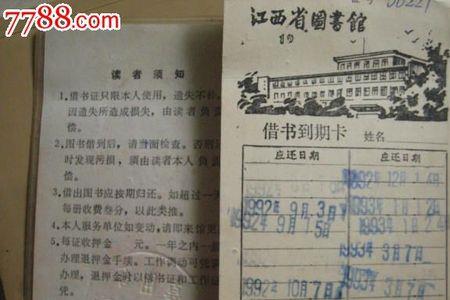 7788.com
读者须知
1.借书证只限本人使用，遗失不
因遗失所造成损失，由读者负
偿。
2.图书借到后，请当面检查。否则
时发现污损，须由读者本人负
偿。
3.借出图书应按期归还。如超过一
每册收费叁分，以此类推。
4.本人服务单位如变动，请即来馆更
5.每证收押金 元。一年之内一
办理退押金手续。工作调动可凭
办理，退押金时以借书证和工作证
凭。
00221
江西省圖書館
19
借书到期卡 姓名
应还日期 应还日期
1992年12月14
1992年9月3 1993年1月12
1992年9月15 1993年1月
1993年3月7
1992年10月7 1993年3月7